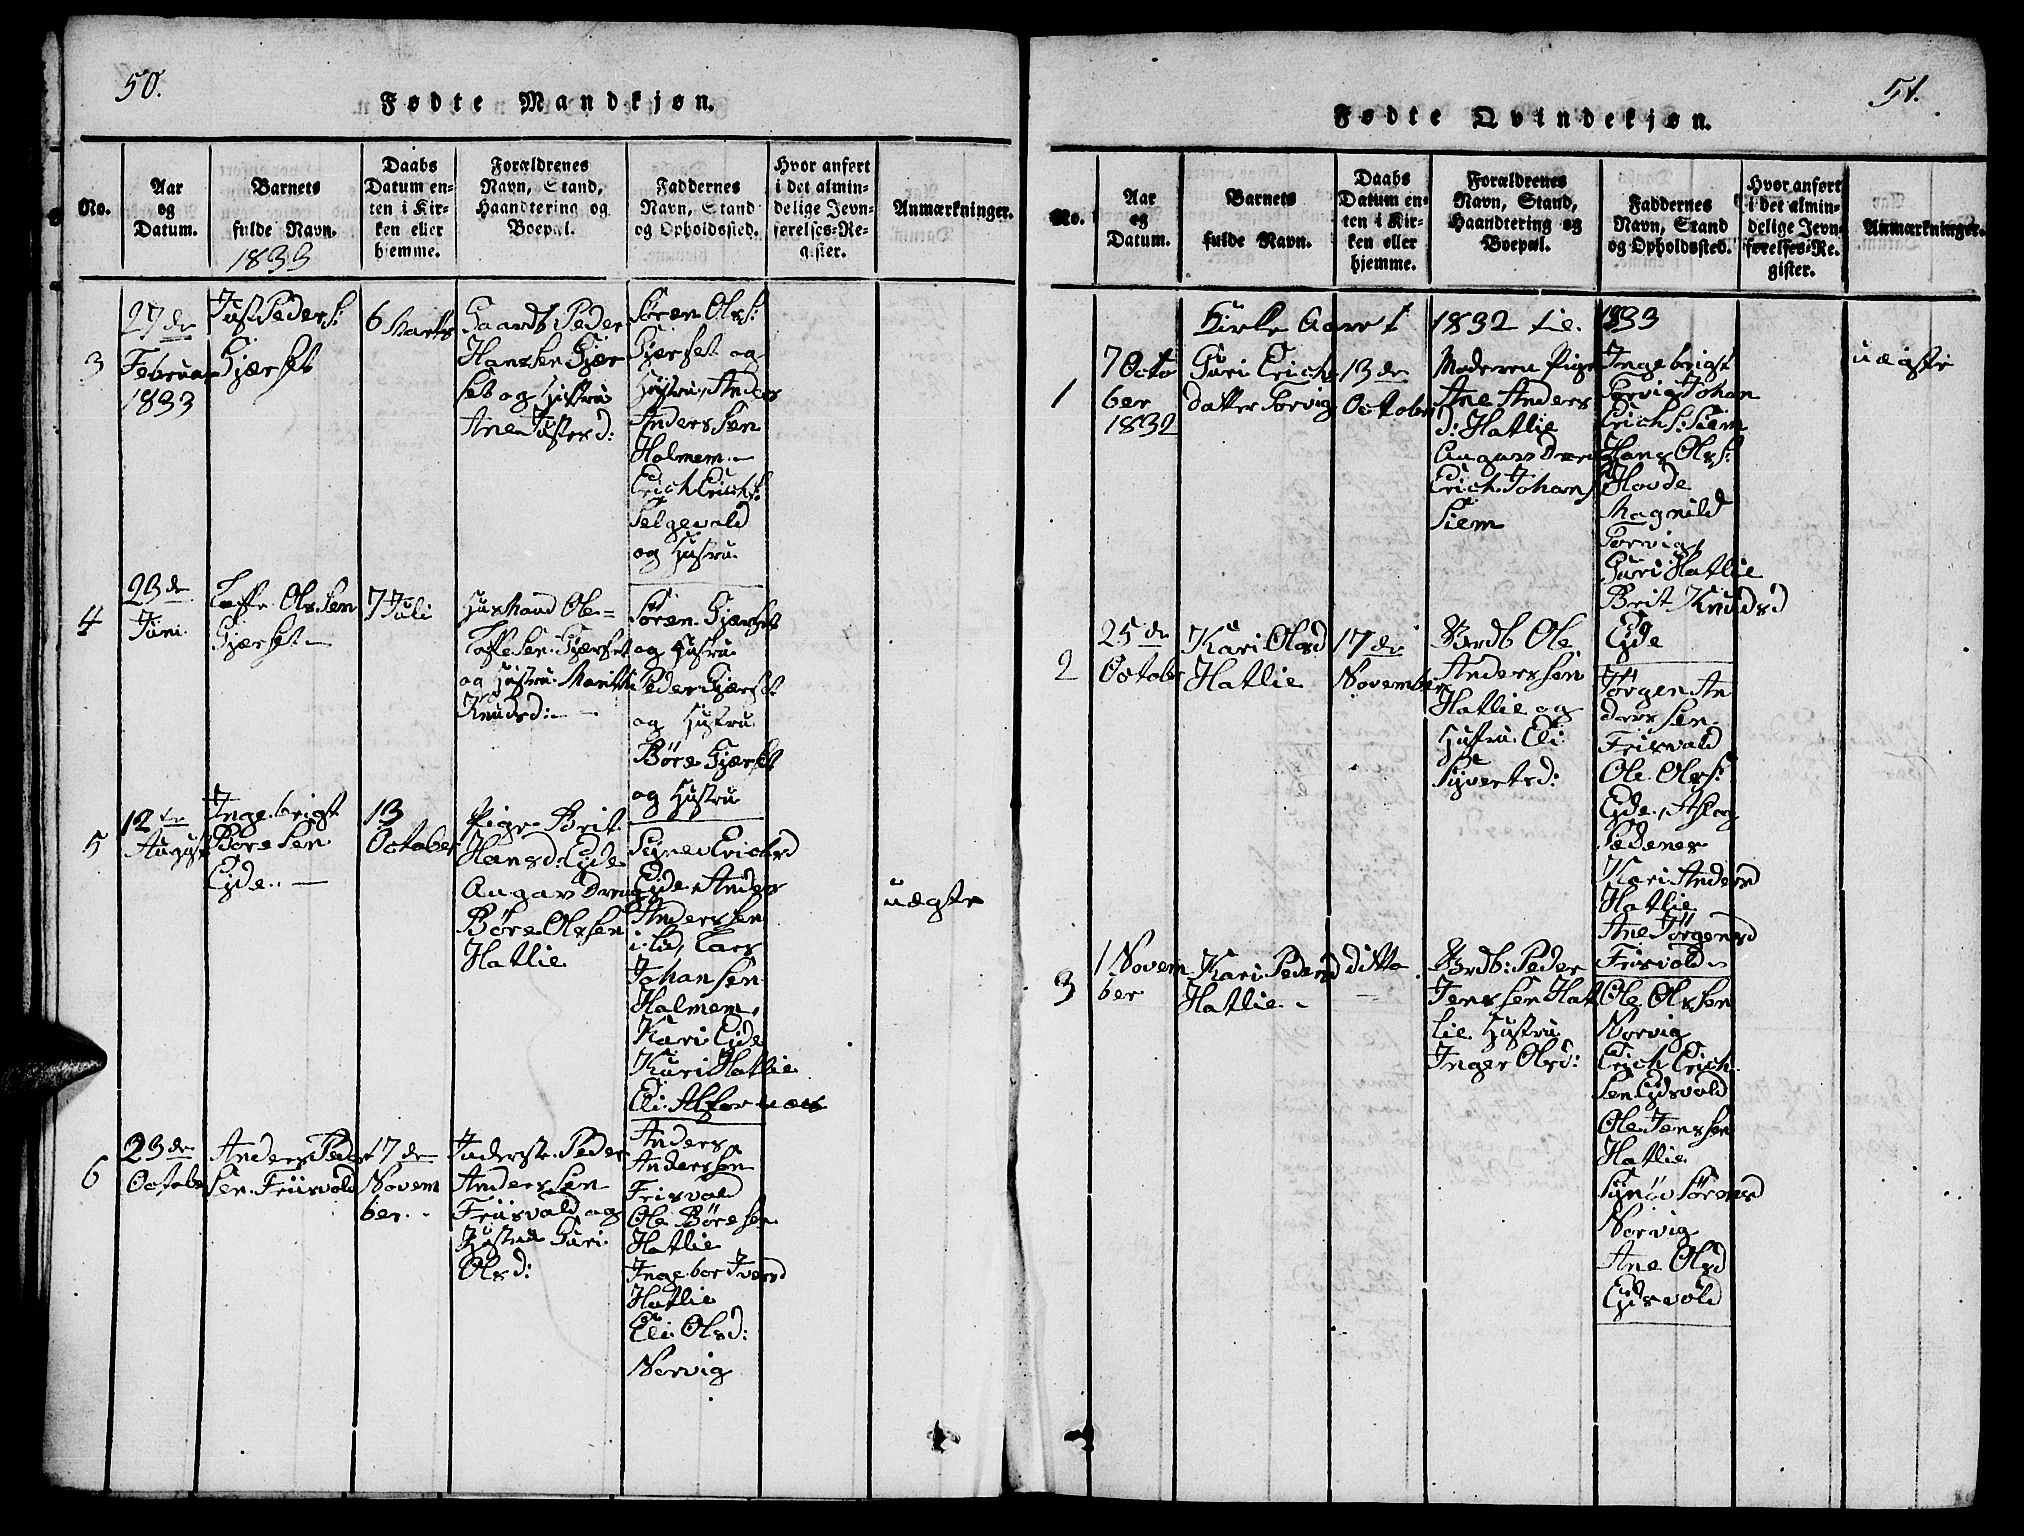 50.
Fødte Mandkjøn.
No.
Aar
og
Datum.
Barnets
fulde Navn.
1833
Daabs
Datum en-
ten i Kir-
ken eller
hjemme.
Forældrenes
Navn, Stand,
Haandtering og
Boepæl.
Faddernes
Navn, Stand
og Opholdssted.
Hvor anført
i det almin-
delige Jevn-
førelses-Re-
gister.
Anmærkninger.
3
27de
Februar
1833
Just Peders:
Gjærset
6 Marts
Gaardb. Peder
Hanssen Gjær
set og Hustru
Ane Justsd:
Søren Ols:
Gjærset og
Hustru, Anders
Anderssen
Holmem.
Erich Erichs:
Selgevold
og Hustru.
4
23de
Juni
Toffe Olssen
Gjærset
7 Juli
Husmand Ole
Toffesen Gjærset
og Hustru Marith
Knudsd:
Søren Gjærset
og Hustru
Peder Gjærset
og Hustru
Børe Gjærset
og Hustru
5
12te
August
Ingebrigt
Børesen
Ejde.
13
October
Pige Brit
Hansd. Ejde
Angav Dreng
Børe Olssen
Hatlie
Signe Erichsd
Ejde, Anders
Anderssen
i Lid, Lars
Johansen
Holmem,
Kari Ejde
Kari Hatlie
Eli Alfarnæs
uægte
6
23de
October
Anders Peder
sen Friisvold
17de
Novem
ber.
Inderste Peder
Anderssen
Friisvold og
Hustru Guri
Olsd:
Anders
Anderssen
Frisvold
Ole Børesen
Hatlie
Ingebor Iversd
Hatlie
Eli Olsd:
Norvig
51.
Fødte Qvindekjøn.
No.
Aar
og
Datum.
Barnets
fulde Navn.
Daabs
Datum en-
ten i Kir-
ken eller
hjemme.
Forældrenes
Navn, Stand,
Haandtering og
Boepæl.
Faddernes
Navn, Stand
og Opholdssted.
Hvor anført
i det almin-
delige Jevn-
førelses-Re-
gister.
Anmærkninger.
Kirke Aaret 1832 til 1833
1
7 Octo
ber
1832
Guri Erichs
datter Torvig
13de
October
Moderen Pige
Ane Anders
d: Hatlie
Angav Dreng
Erich Johans
Siem
Ingebrigt
Torvig Johan
Erichs: Siem
Hans Ols:
Hovde
Magnild
Torvig,
Guri Hatlie
Brit Knudsd
Ejde
uægte
2
25de
October
Kari Olsd
Hatlie
17de
November
Brdb Ole
Anderssen
Hatlie og
Hustru Eli
Syvertsd:
Jørgen An
derssen
Frisvold
Ole Ols:
Ejde, Aslog
Sædenes
Kari Andersd
Hatlie
Ane Jørgensd
Frisvold
3
1 Novem
ber
Kari Pedersd
Hatlie
ditto
Brdb: Peder
Jenssen Hat
lie Hustru
Inger Olsd:
Ole Olssen
Norvig
Erich Erich
sen Ejdsvold
Ole Jenssen
Hatlie
Synøv Sørensd
Norvig
Ane Olsd
Ejdsvold